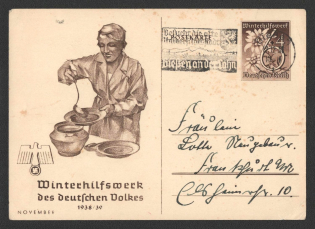 Winterhilfswerk
des deutschen Volkes
1938/39
NOVEMBER
Besucht die
Gießen an der Lahn
Winterhilfswerk
6
Deutsches Reich
Fräulein
Lotte Neugebauer
Frankfurt M
Elsheimerstr. 10.